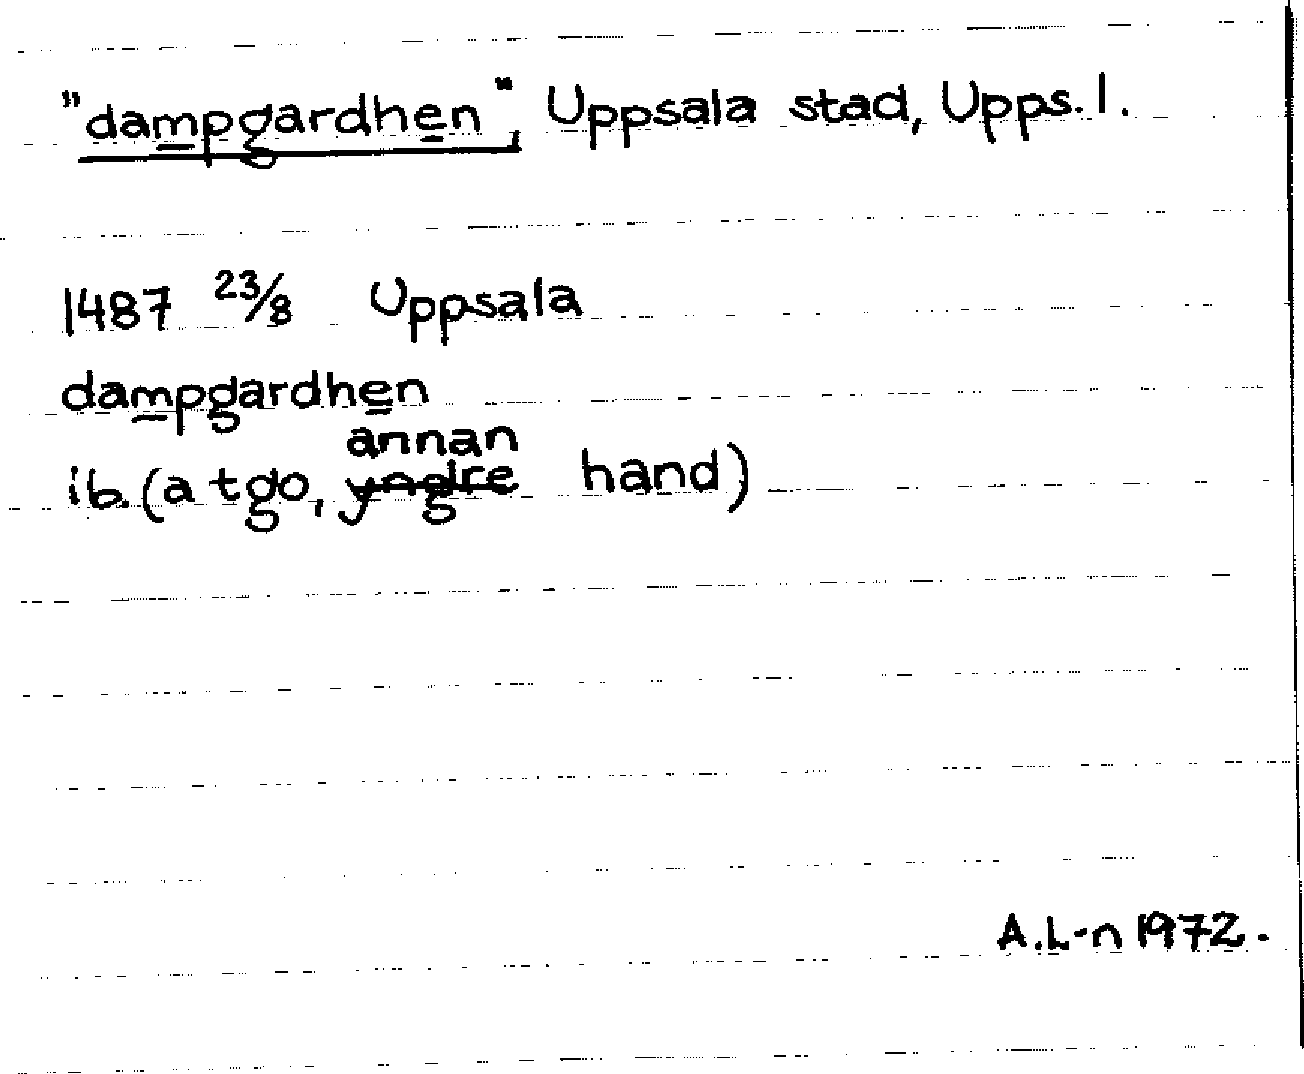 "dampgardhen", Uppsala stad, Upps. l.
1487 23/8 Uppsala
dampgardhen
annan
ib. (a tgo, yngre hand)
A.L-n 1972.